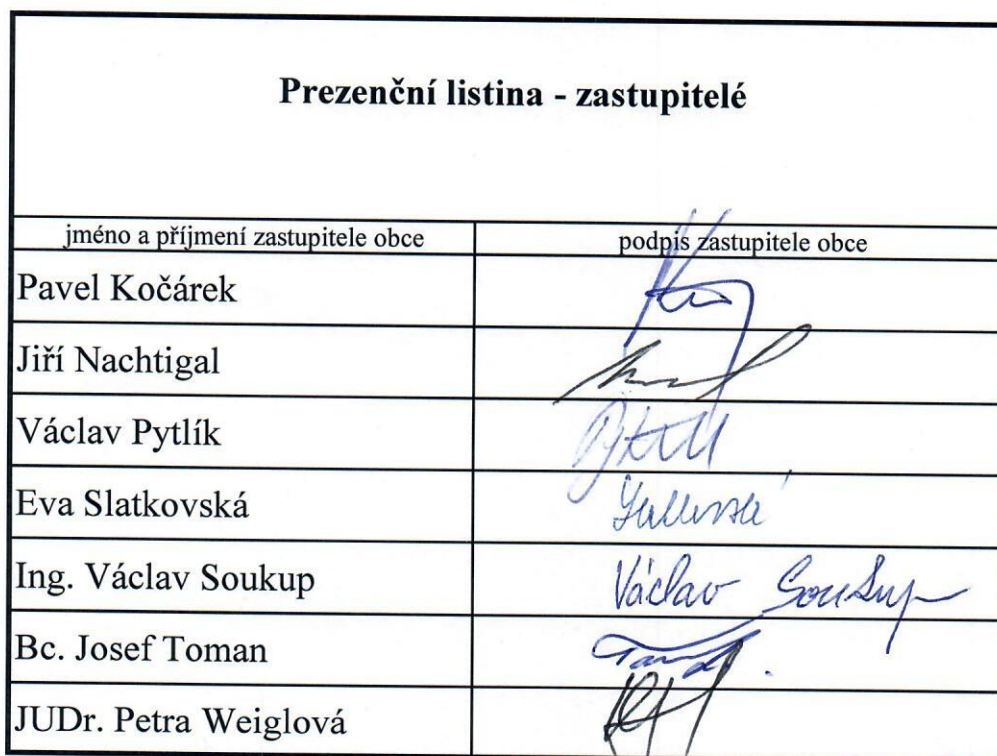 Prezenční listina - zastupitelé
jméno a příjmení zastupitele obce podpis zastupitele obce
Pavel Kočárek
Jiří Nachtigal
Václav Pytlík
Eva Slatkovská
Ing. Václav Soukup Václav Soukup
Bc. Josef Toman
JUDr. Petra Weiglová